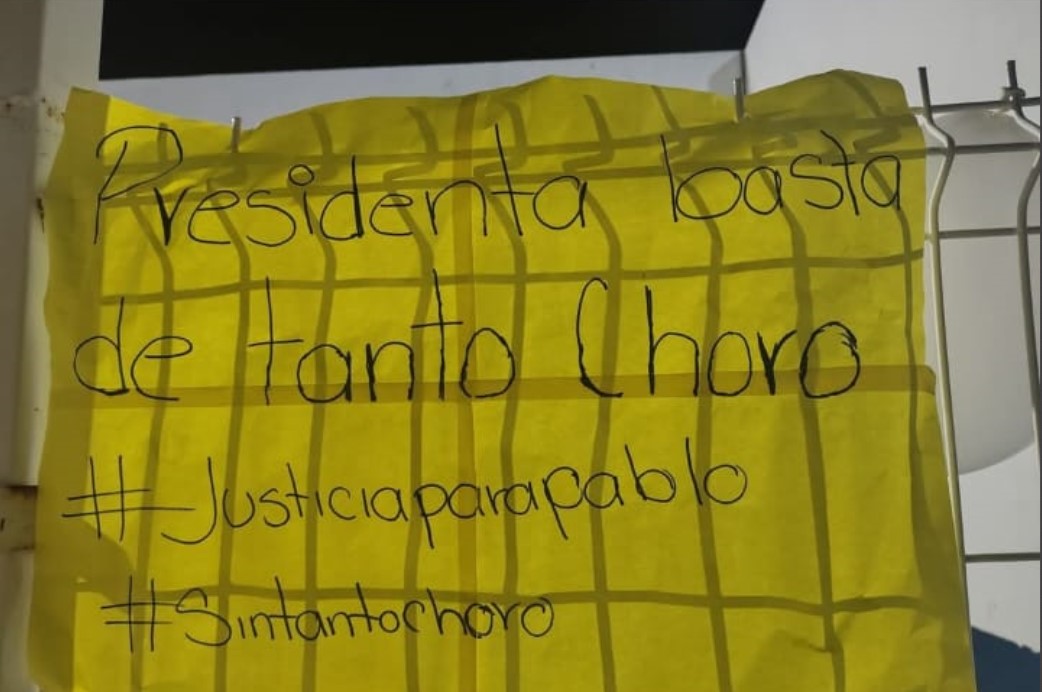 Presidenta basta
de tanto Choro
#Justiciaparapablo
#Sintantochoro